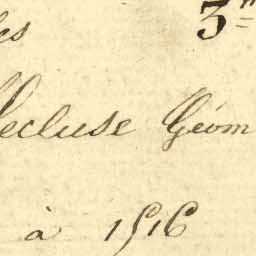 es 3
lecluse Géom
à 1516